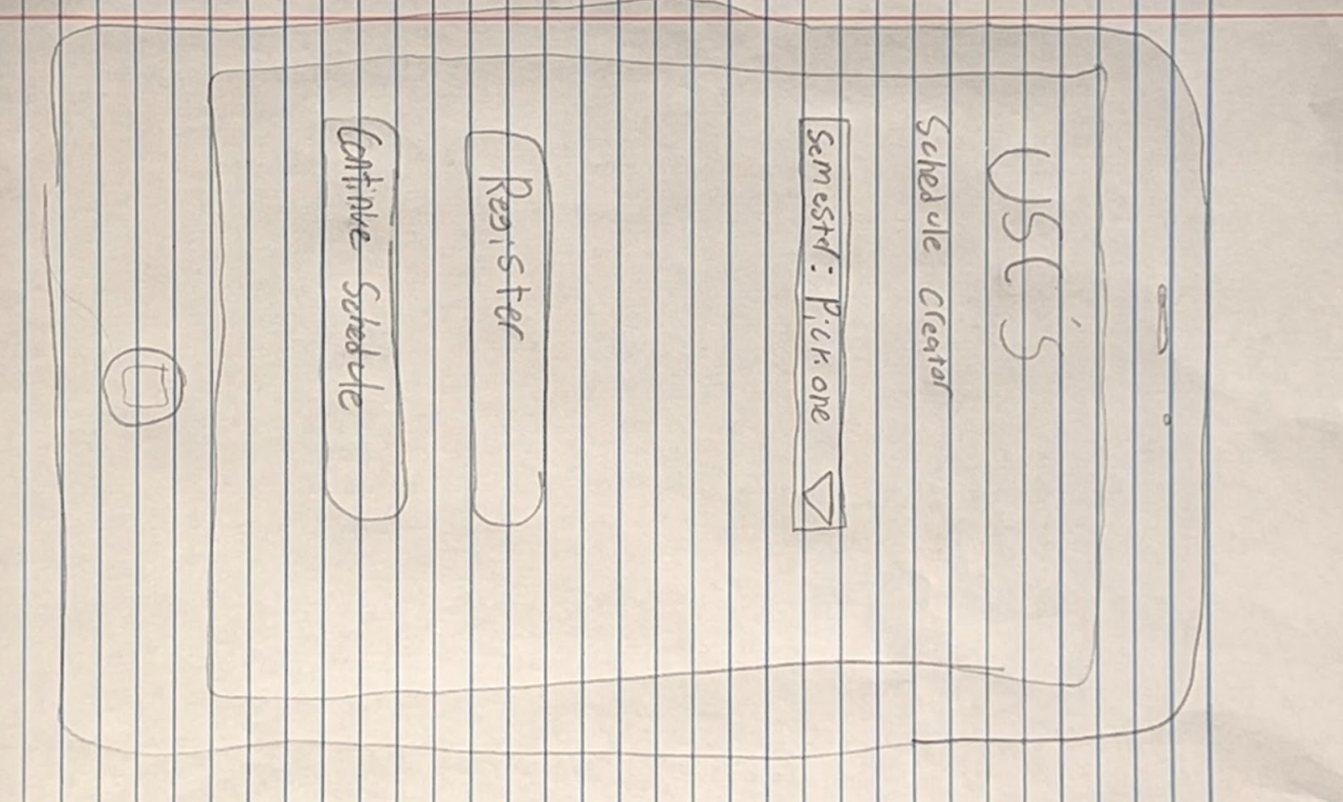 USC's
Schedule Creator
Semester: Pick one
Register
Continue Schedule